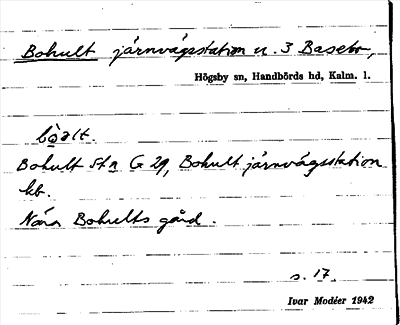 Bohult järnvägsstation u. 3 Basebo,
Högsby sn, Handbörds hd, Kalm. l.
Bohult stn G 29, Bohult järnvägsstation
kb.
Nära Bohults gård.
s. 17.
Ivar Modéer 1942